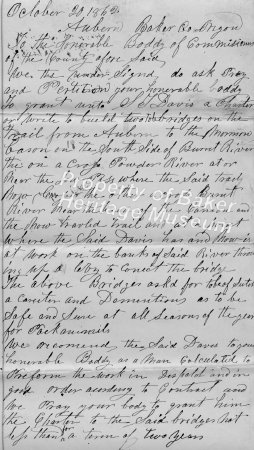 October 20, 1862
Auburn Baker Co. Oregon
To the Honorable Boddy of Commisions
of the County afore Said
We the under Signd do ask Pray
and Petition your honorable boddy
to grant unto S. S. Davis a Charter
or Write to build two toll bridges on the
trail from Auburn to the Mormon
Bason on the South Side of Burnt River
the on a Cross Powder River at or
Near the Place Where the Said trail
Now Crosses the other a Cross Burnt
River Near the of the Canion and
the Now travled trail and at a point
Where the Said Davis has and Now is
at work on the bank of Said River throw
ing up a to Conect the bridge
The above Bridges askd for to be of Such
a Carcter and Demintions as to be
Safe and Sure at all Seasons of the year
for Packanimils
We recomend the Said Davis to your
honorable Boddy as a Man Calculated to
Preform the work in Dispatch and in
good order acording to Contract and
We Pray your body to grant him
the Charter to the Said bridges not
less than a term of two years
Property of Baker
Heritage Museum